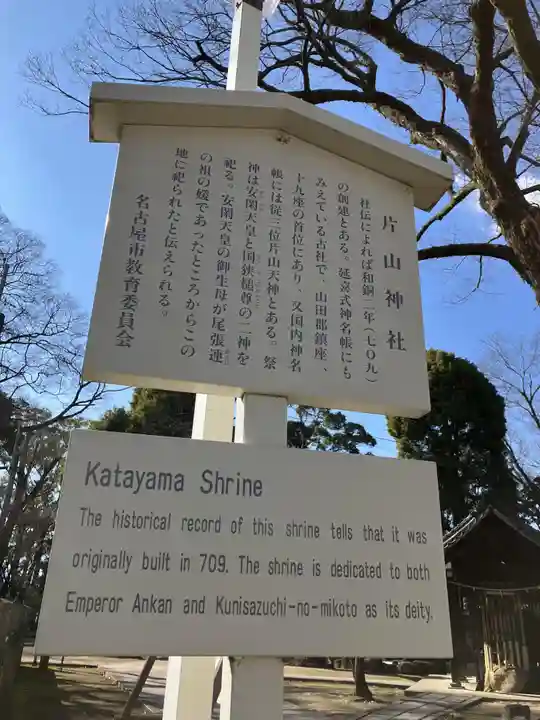 片山神社
社伝によれば和銅二年(七〇九)
の創建とある。延喜式神名帳にも
みえている古社で、山田郡鎮座、
十九座の首位にあり、又国内神名
帳には従三位片山天神とある。祭
神は安閑天皇と国狭槌尊の二神を
祀る。安閑天皇の御生母が尾張連
の祖の媛であったところからこの
地に祀られたと伝えられる。
名古屋市教育委員会
Katayama Shrine
The historical record of this shrine tells that it was
originally built in 709. The shrine is dedicated to both
Emperor Ankan and Kunisazuchi-no-mikoto as its deity.